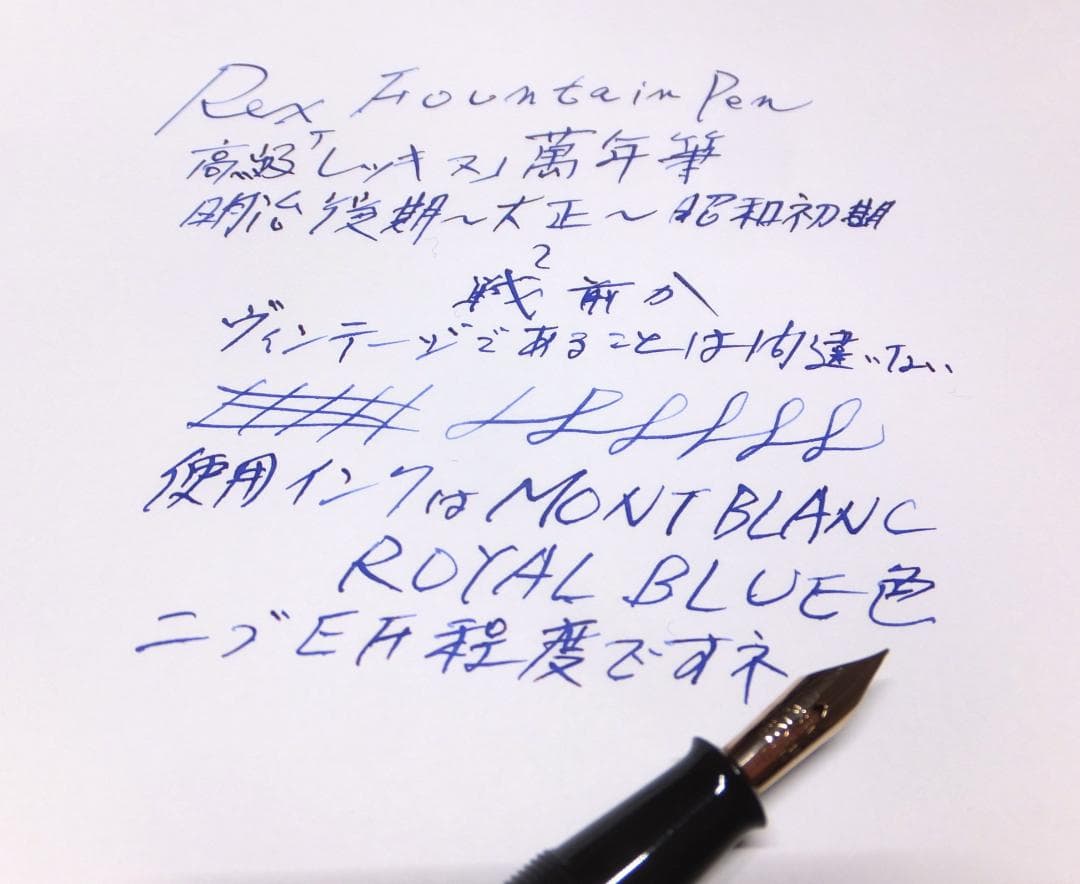 Rex Fountain Pen
高級「レッキス」萬年筆
明治後期〜大正〜昭和初期
戦前か
ヴィンテージであることは間違いない
使用インクは MONTBLANC
ROYAL BLUE色
ニブEF程度ですネ